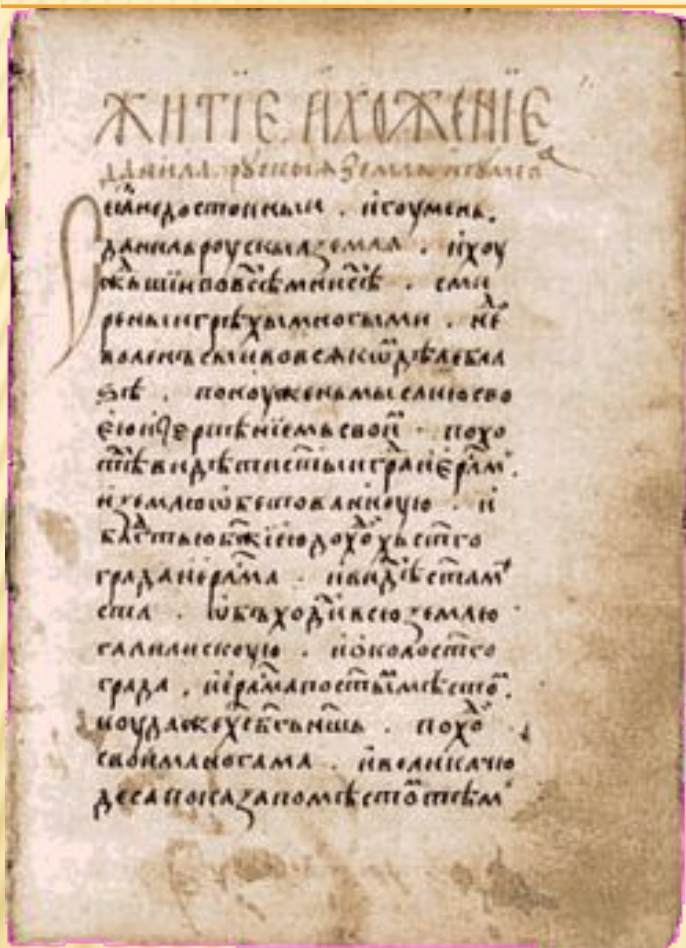 ЖИТЇЕ И҆ХОЖЕНЇЕ
данила рускыꙗ земли игумена
недостоиныи . игоумень .
данильроускыꙗземлѧ . ихоу
жъшїивовсѣⷯмнисѣⷯ . сми
реныигрѣхымногыми . не
воленьсыивовсѧкѡⷨдѣлебла
ѕѣ . поноуженьмыслиюсво
еюинетерпѣнїемьсвоиⷨ . похо
тѣⷯвидѣтистⷭыиграⷣиерⷭлⷨ
иземлюѡбетованноую . и
блгⷣтьюбж҃їеюдохоⷣхьстг҃о
градаиерⷭлма . ивидѣⷯстаⷨ
ста . ѡбьходиⷯвсюземлю
галилискоую . иоколостг҃о
града . иерⷭлмапостыⷨмѣстоⷨ .
ноудажехс҃бг҃ьнш҃ь . похоⷣ
своиманогама . ивеликачю
десапоказапомѣстоⷨтѣⷨ